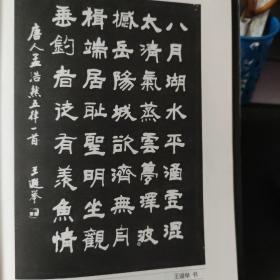 八月湖水平涵虛混
太清氣蒸雲夢澤波
撼岳陽城欲濟無舟
楫端居耻聖明坐觀
垂釣者徒有羨魚情
唐人孟浩然五律一首 王遐举
王遐举 书